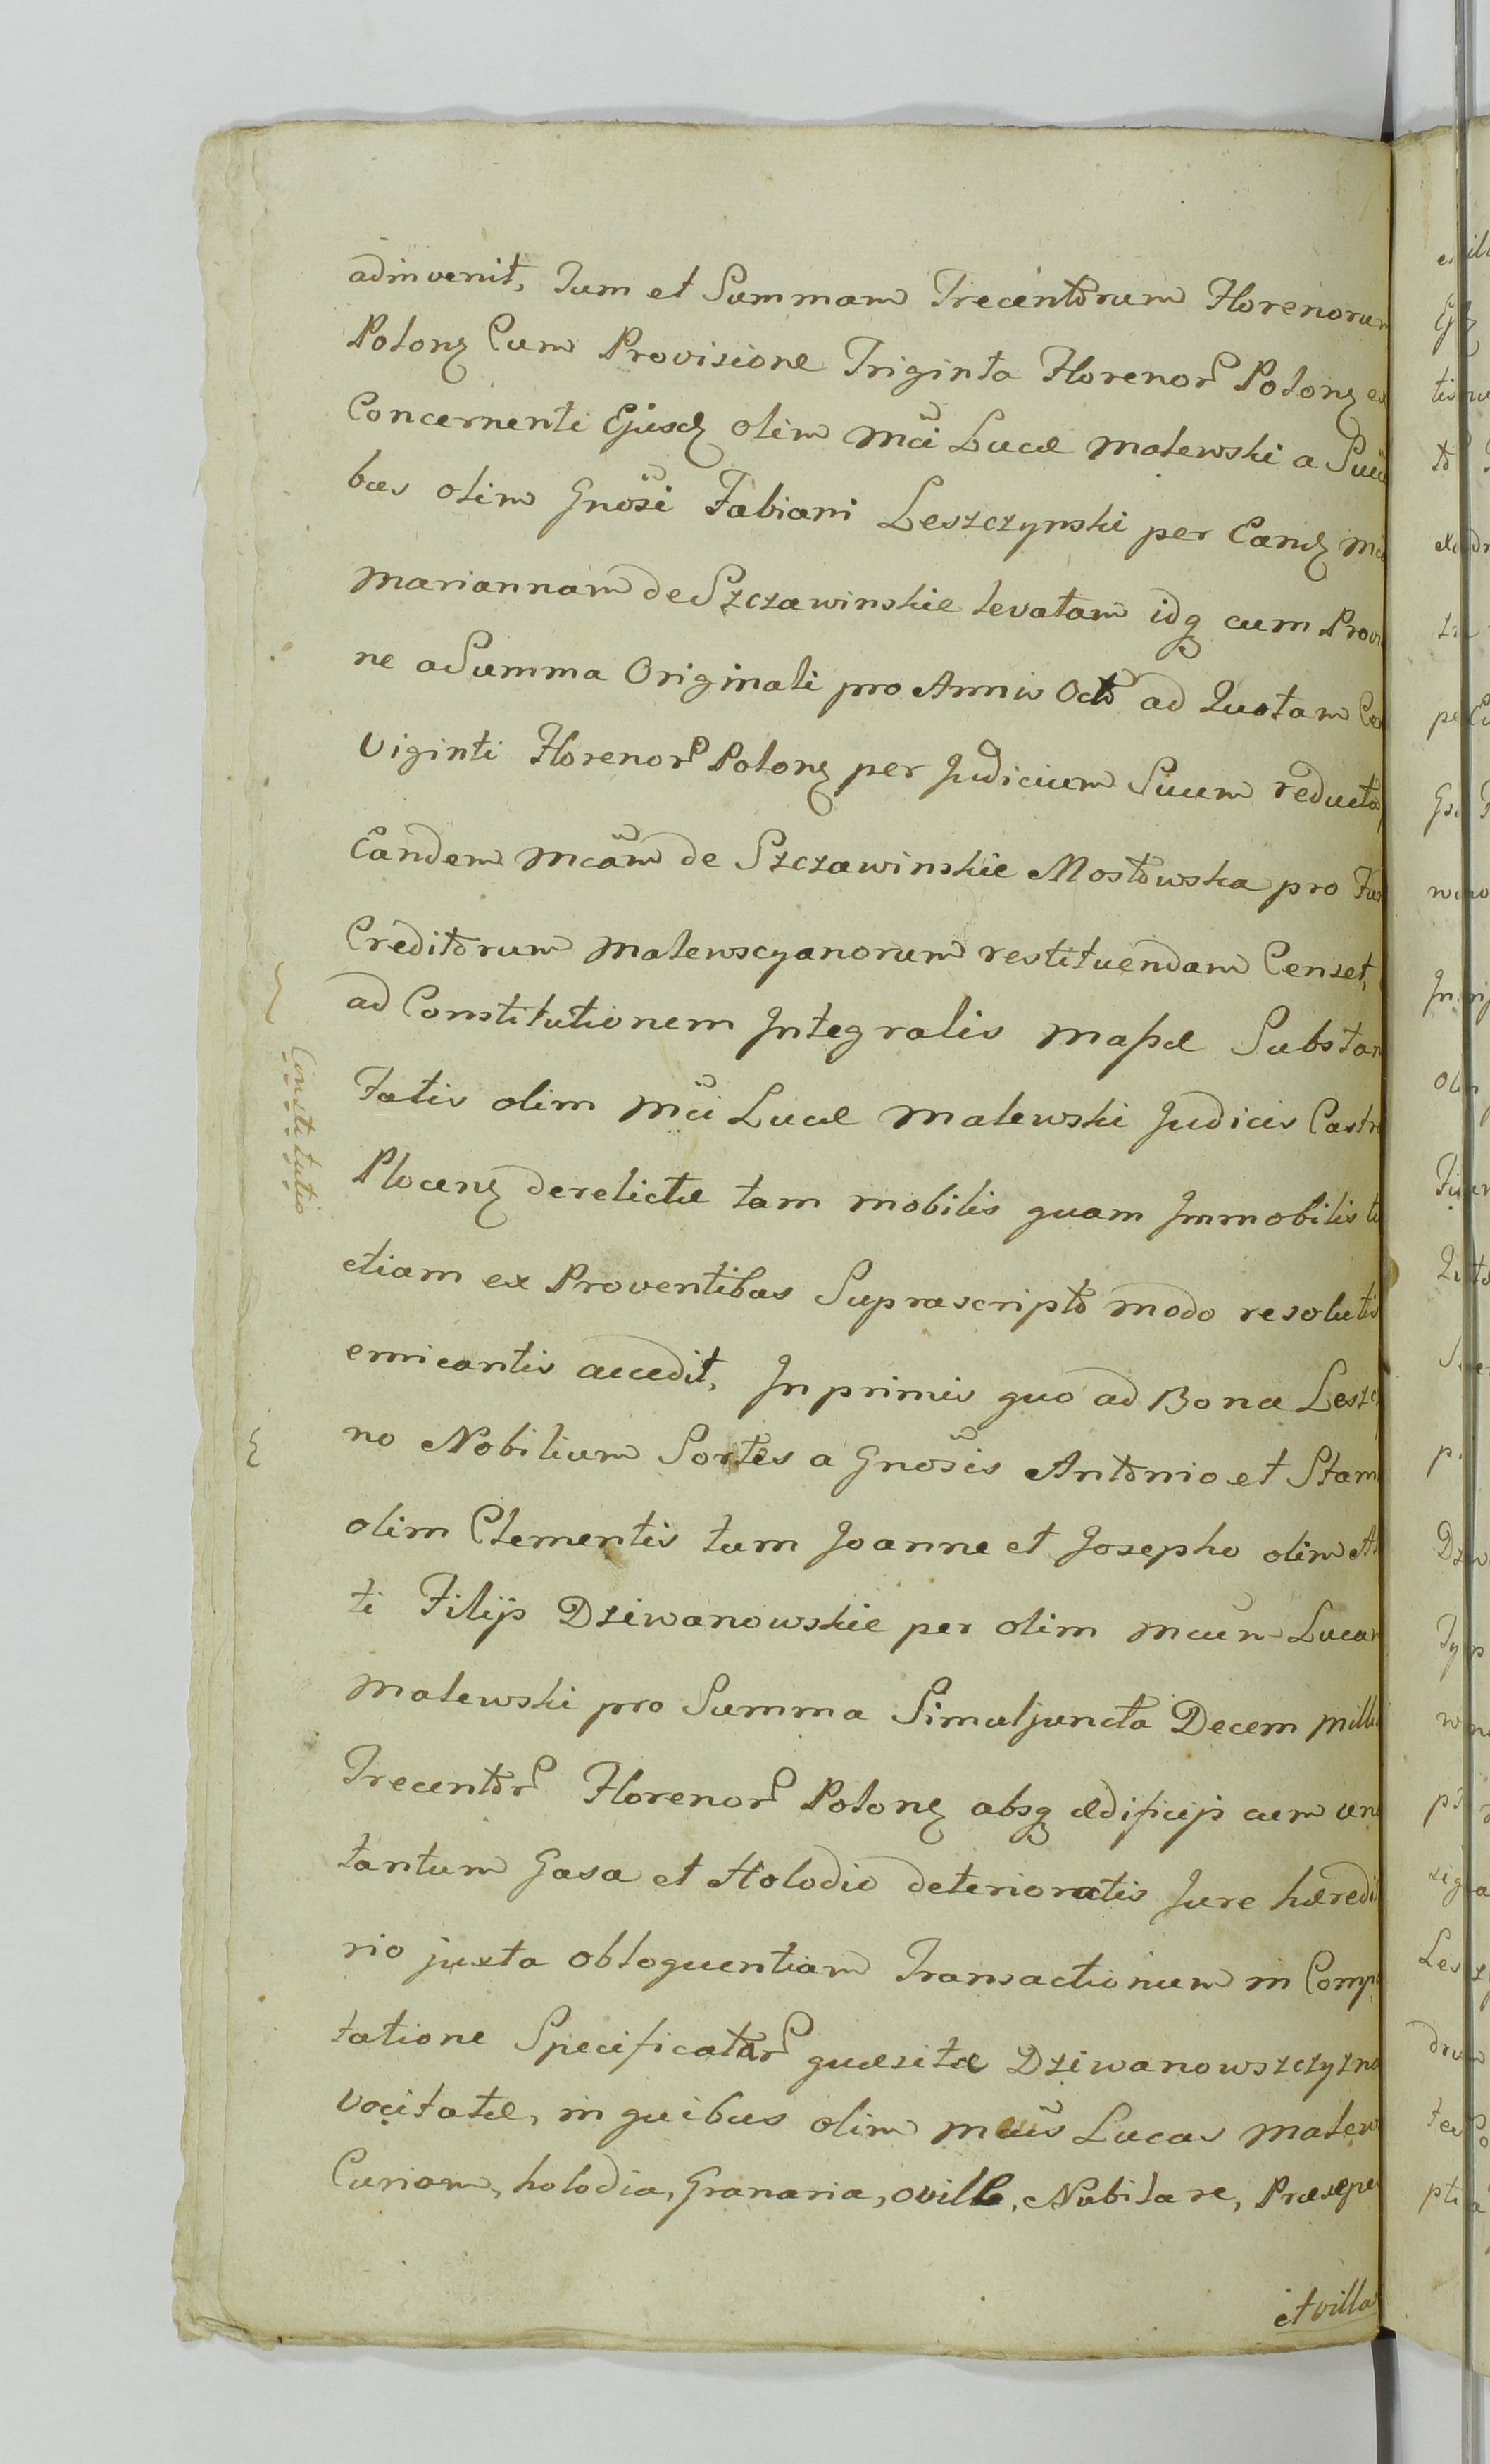 adinvenit, Tum et Summam Trecentorum Florenorum
Polonʒ Cum Provisione Triginta Florenor Polonʒ ex
Concernenti Ejusdʒ olim Mci Lucæ Malewski a Succ
bus olim Gnosi Fabiani Leszczynski per Eandʒ Mc
Mariannam de Szczawinskie levatam idq cum Provi
ne a Summa Originali pro Annis Octo ad Quotam Cen
Viginti Florenor Polonʒ per Judicium Suum reducta
Eandem Mcam de Szczawinskie Mostowska pro
Creditorum Malewscyanorum restituendam Censet,
ad Constitutionem Integralis Massæ Substan
Constitutio
tatis olim Mci Lucæ Malewski Judicis Castr
Plocenʒ derelictæ tam mobilis quam Immobilis
etiam ex Proventibus Suprascripto modo resolutis
emicantis accedit, Inprimis quo ad Bona Leszc
no Nobilium Sortes a Gnosis Antonio et Stan
olim Clementis tum Joanne et Josepho olim
ti Filijs Dziwanowskie per olim Mcum Lucam
Malewski pro Summa Simuljuncta Decem Milli
Trecentor Florenor Polonʒ absq ædificijs cum un
tantum Gasa et Holodio deterioratis Jure hæredi
rio juxta obloquentiam Transactionum in Comp
tatione Specificator quæsitæ Dziwanowszczyzna
vocitatæ, in quibus olim Mcus Lucas Malew
Curiam, holodia, Granaria, oville, Nubilare, Præsepe
et villa